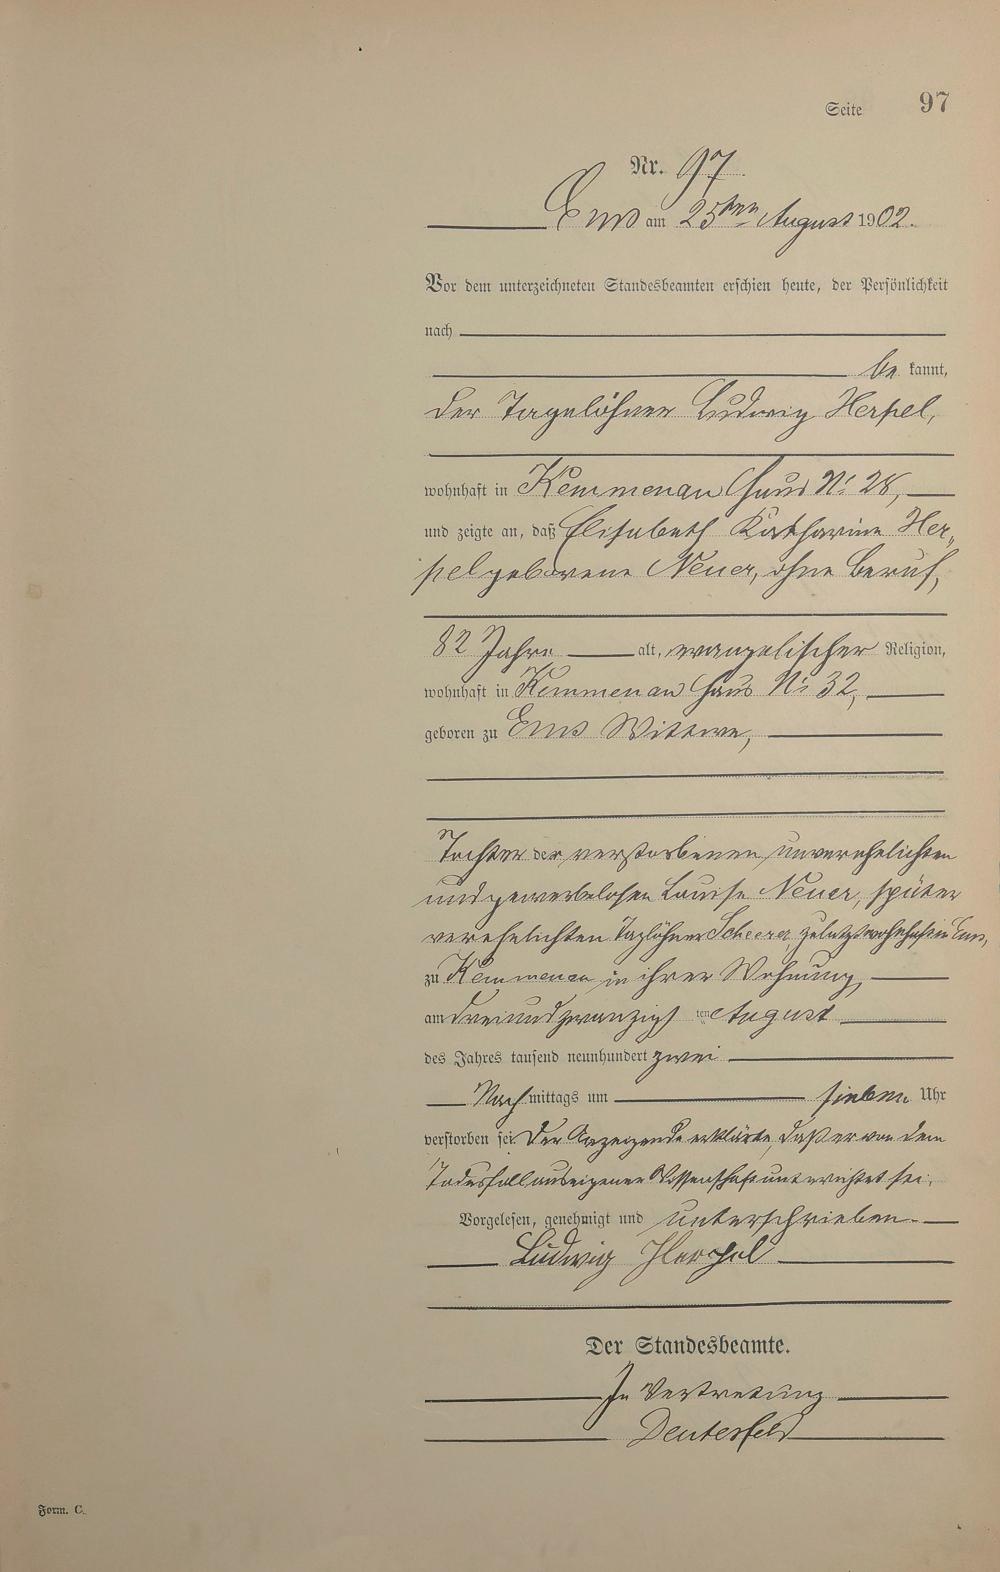 Seite 97
Nr. 97
Ems am 25ten August 1902.
Vor dem unterzeichneten Standesbeamten erschien heute, der Persönlichkeit
nach
be kannt,
der Tagelöhner Ludwig Herpel,
wohnhaft in Kemmenau Haus No 28,
und zeigte an, daß Elisabeth Katharine Her-
pel geborene Neuer, ohne Beruf,
82 Jahre alt, evangelischer Religion,
wohnhaft in Kemmenau Haus No 32,
geboren zu Ems Wittwe,
Tochter der verstorbenen unverehelichten
und gewerbelosen Louise Neuer, später
verehelichten Taglöhner Scheerer, zuletzt wohnhaft in Ems,
zu Kemmenau in ihrer Wohnung,
am dreiundzwanzigsten August
des Jahres tausend neunhundert zwei
Nachmittags um sieben Uhr
verstorben sei. Der Anzeigende erklärte, daß er von dem
Todesfall aus eigener Wissenschaft unterrichtet sei.
Vorgelesen, genehmigt und unterschrieben.
Ludwig Herpel
Der Standesbeamte.
In Vertretung
Deuterfeld
Form. C.